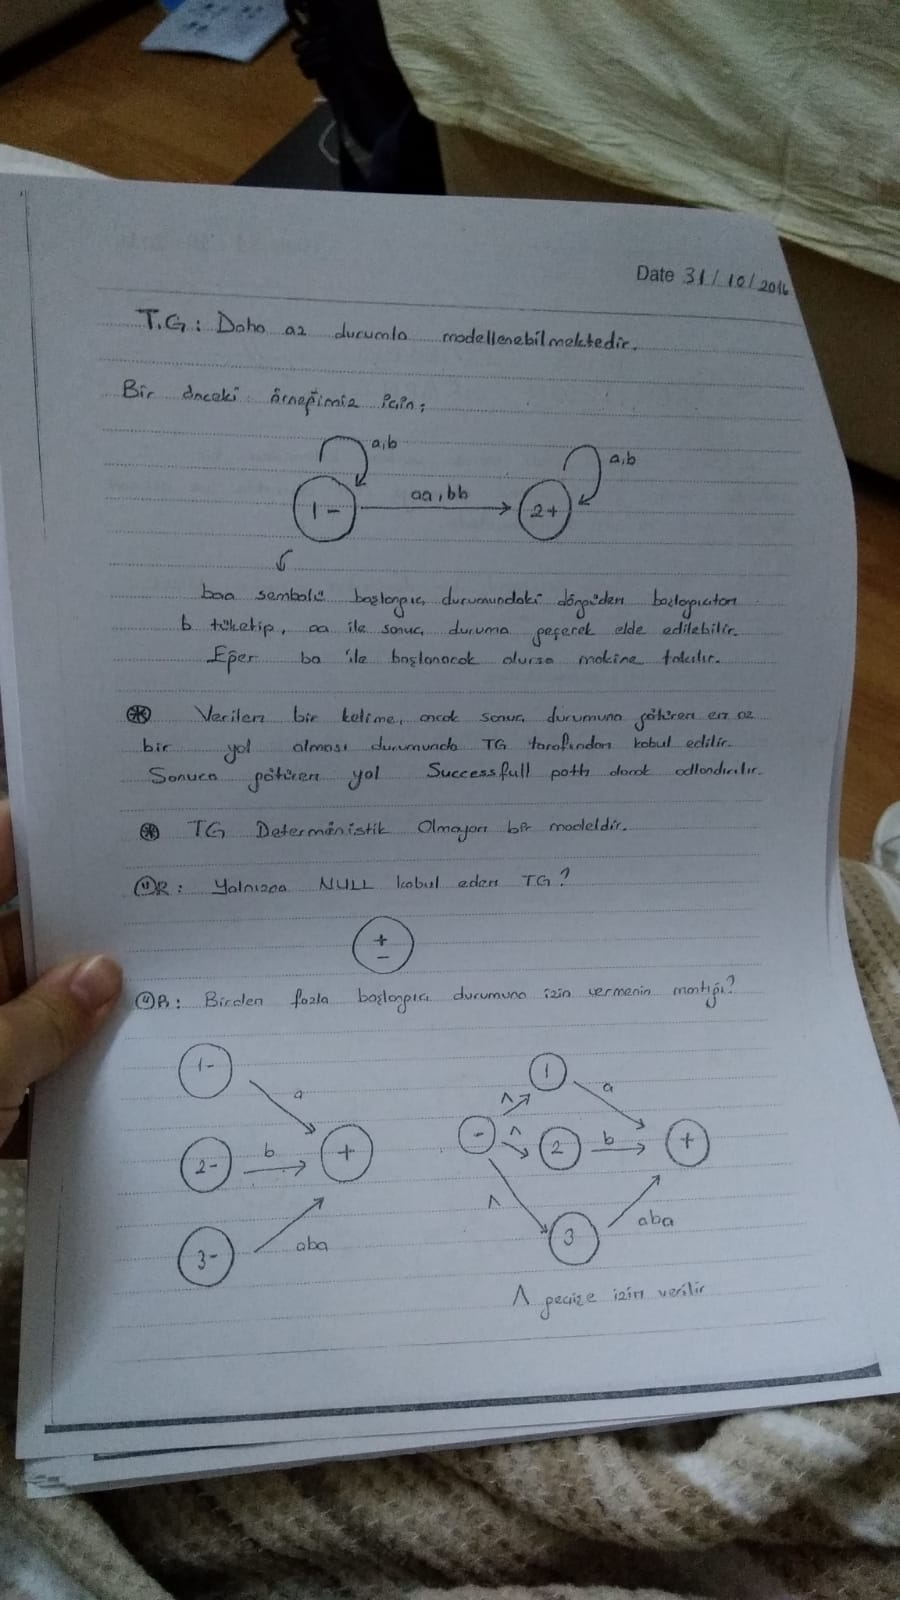 Date 31/10/2016
T.G: Daha az durumla modellenebilmektedir.
Bir önceki örneğimiz için;
a,b
a,b
aa,bb
1-
2+
baa sembolü başlangıç durumundaki döngüden başlangıçtan
b tüketip, aa ile sonuç duruma geçerek elde edilebilir.
Eğer ba 'ile başlanacak olursa makine takılır.
Verilen bir kelime, ancak sonuç durumuna götüren en az
bir yol olması durumunda TG tarafından kabul edilir.
Sonuca götüren yol Successfull path olarak adlandırılır.
TG Deterministik Olmayan bir modeldir.
ÖR: Yalnızca NULL kabul eden TG?
+
-
ÖR: Birden fazla başlangıç durumuna izin vermenin mantığı?
1-
1
a
Λ
a
2-
b
+
-
Λ
2
b
+
Λ
3-
aba
3
aba
Λ geçişe izin verilir